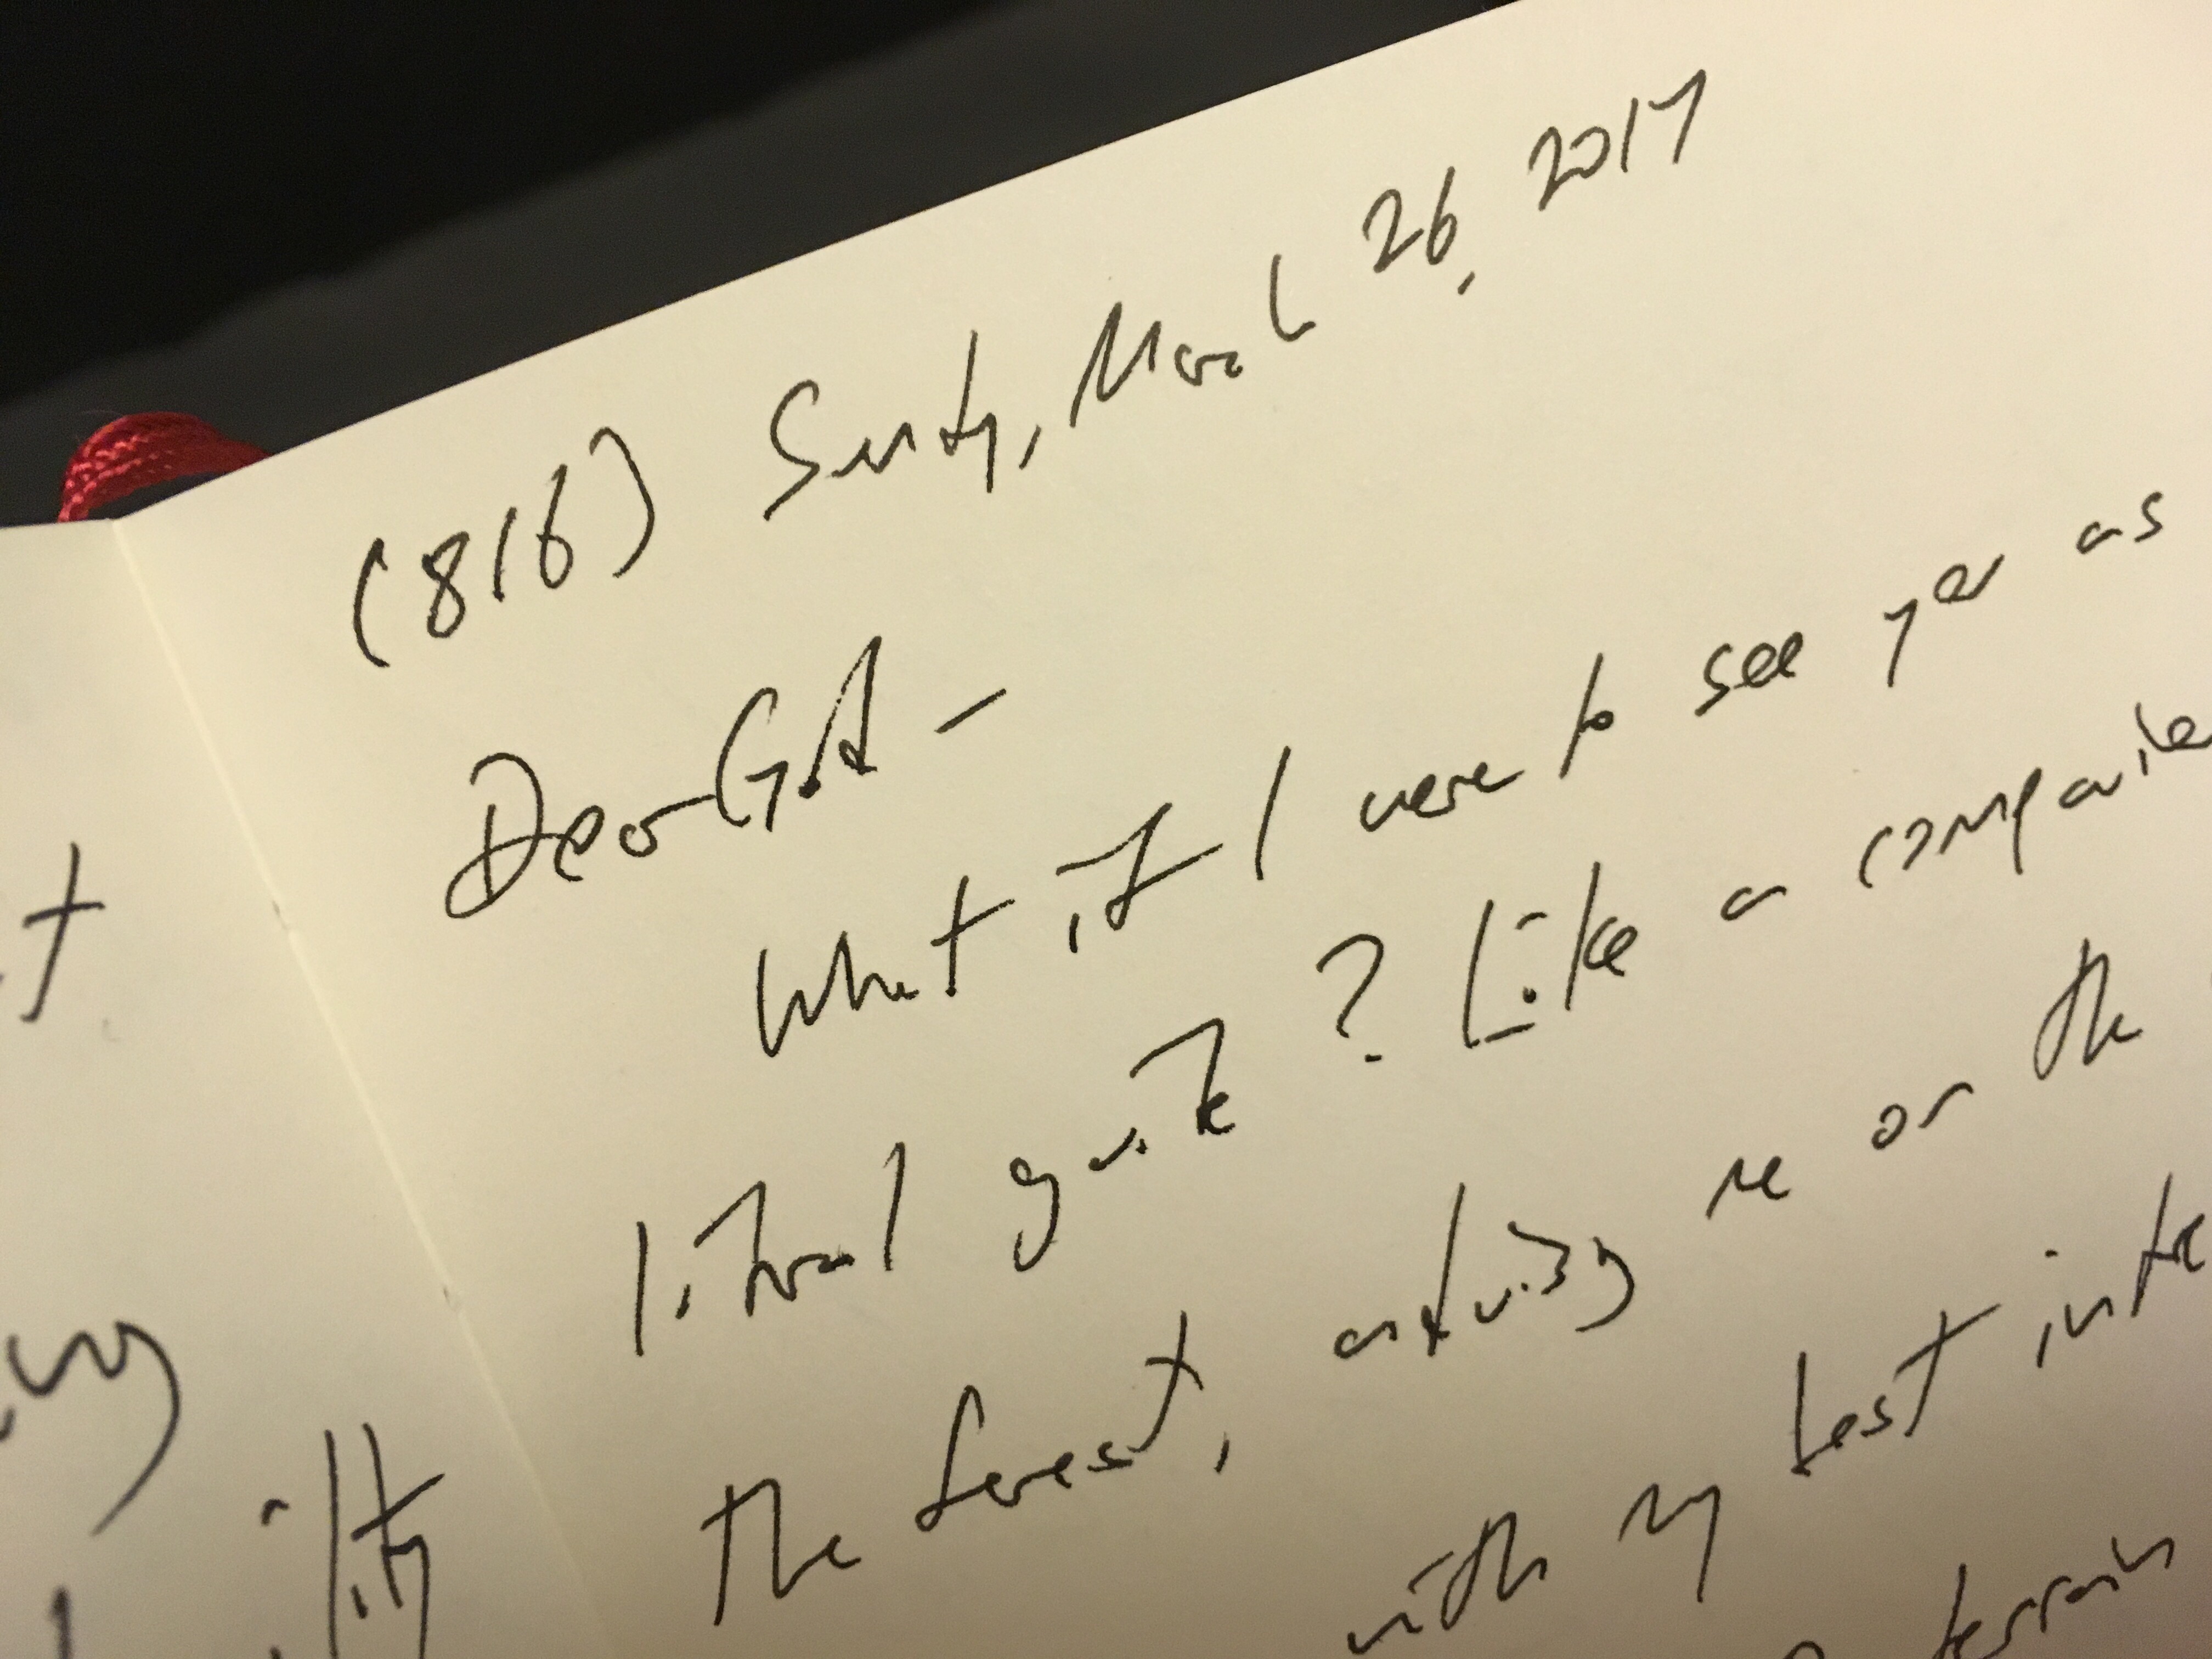 (816) Sunday, March 26, 2017
Dear God -
What if I were to see you as
literal guide? Like a
the forest, advising me on the
with my best
terrain